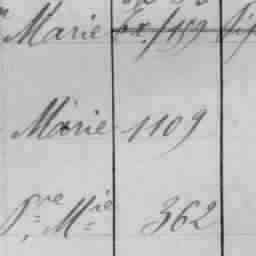 Marie
Marie 1109
Pre Mie 362